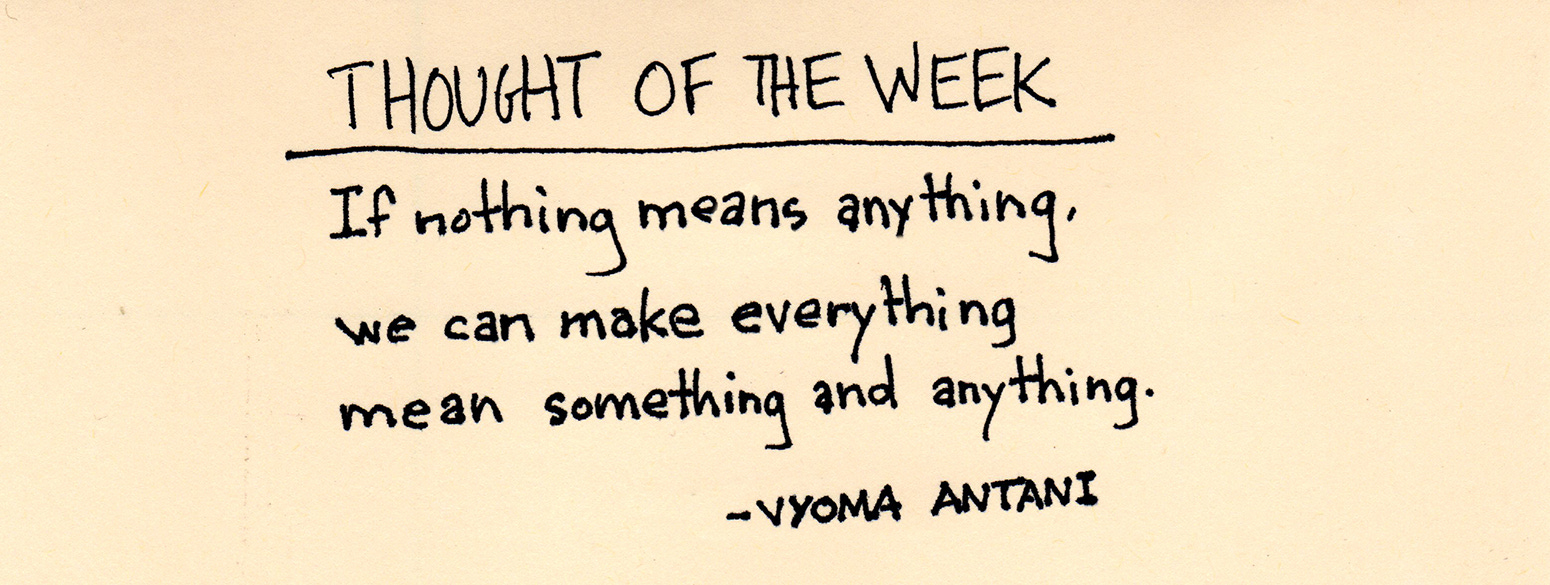 THOUGHT OF THE WEEK
If nothing means anything,
we can make everything
mean something and anything.
-VYOMA ANTANI